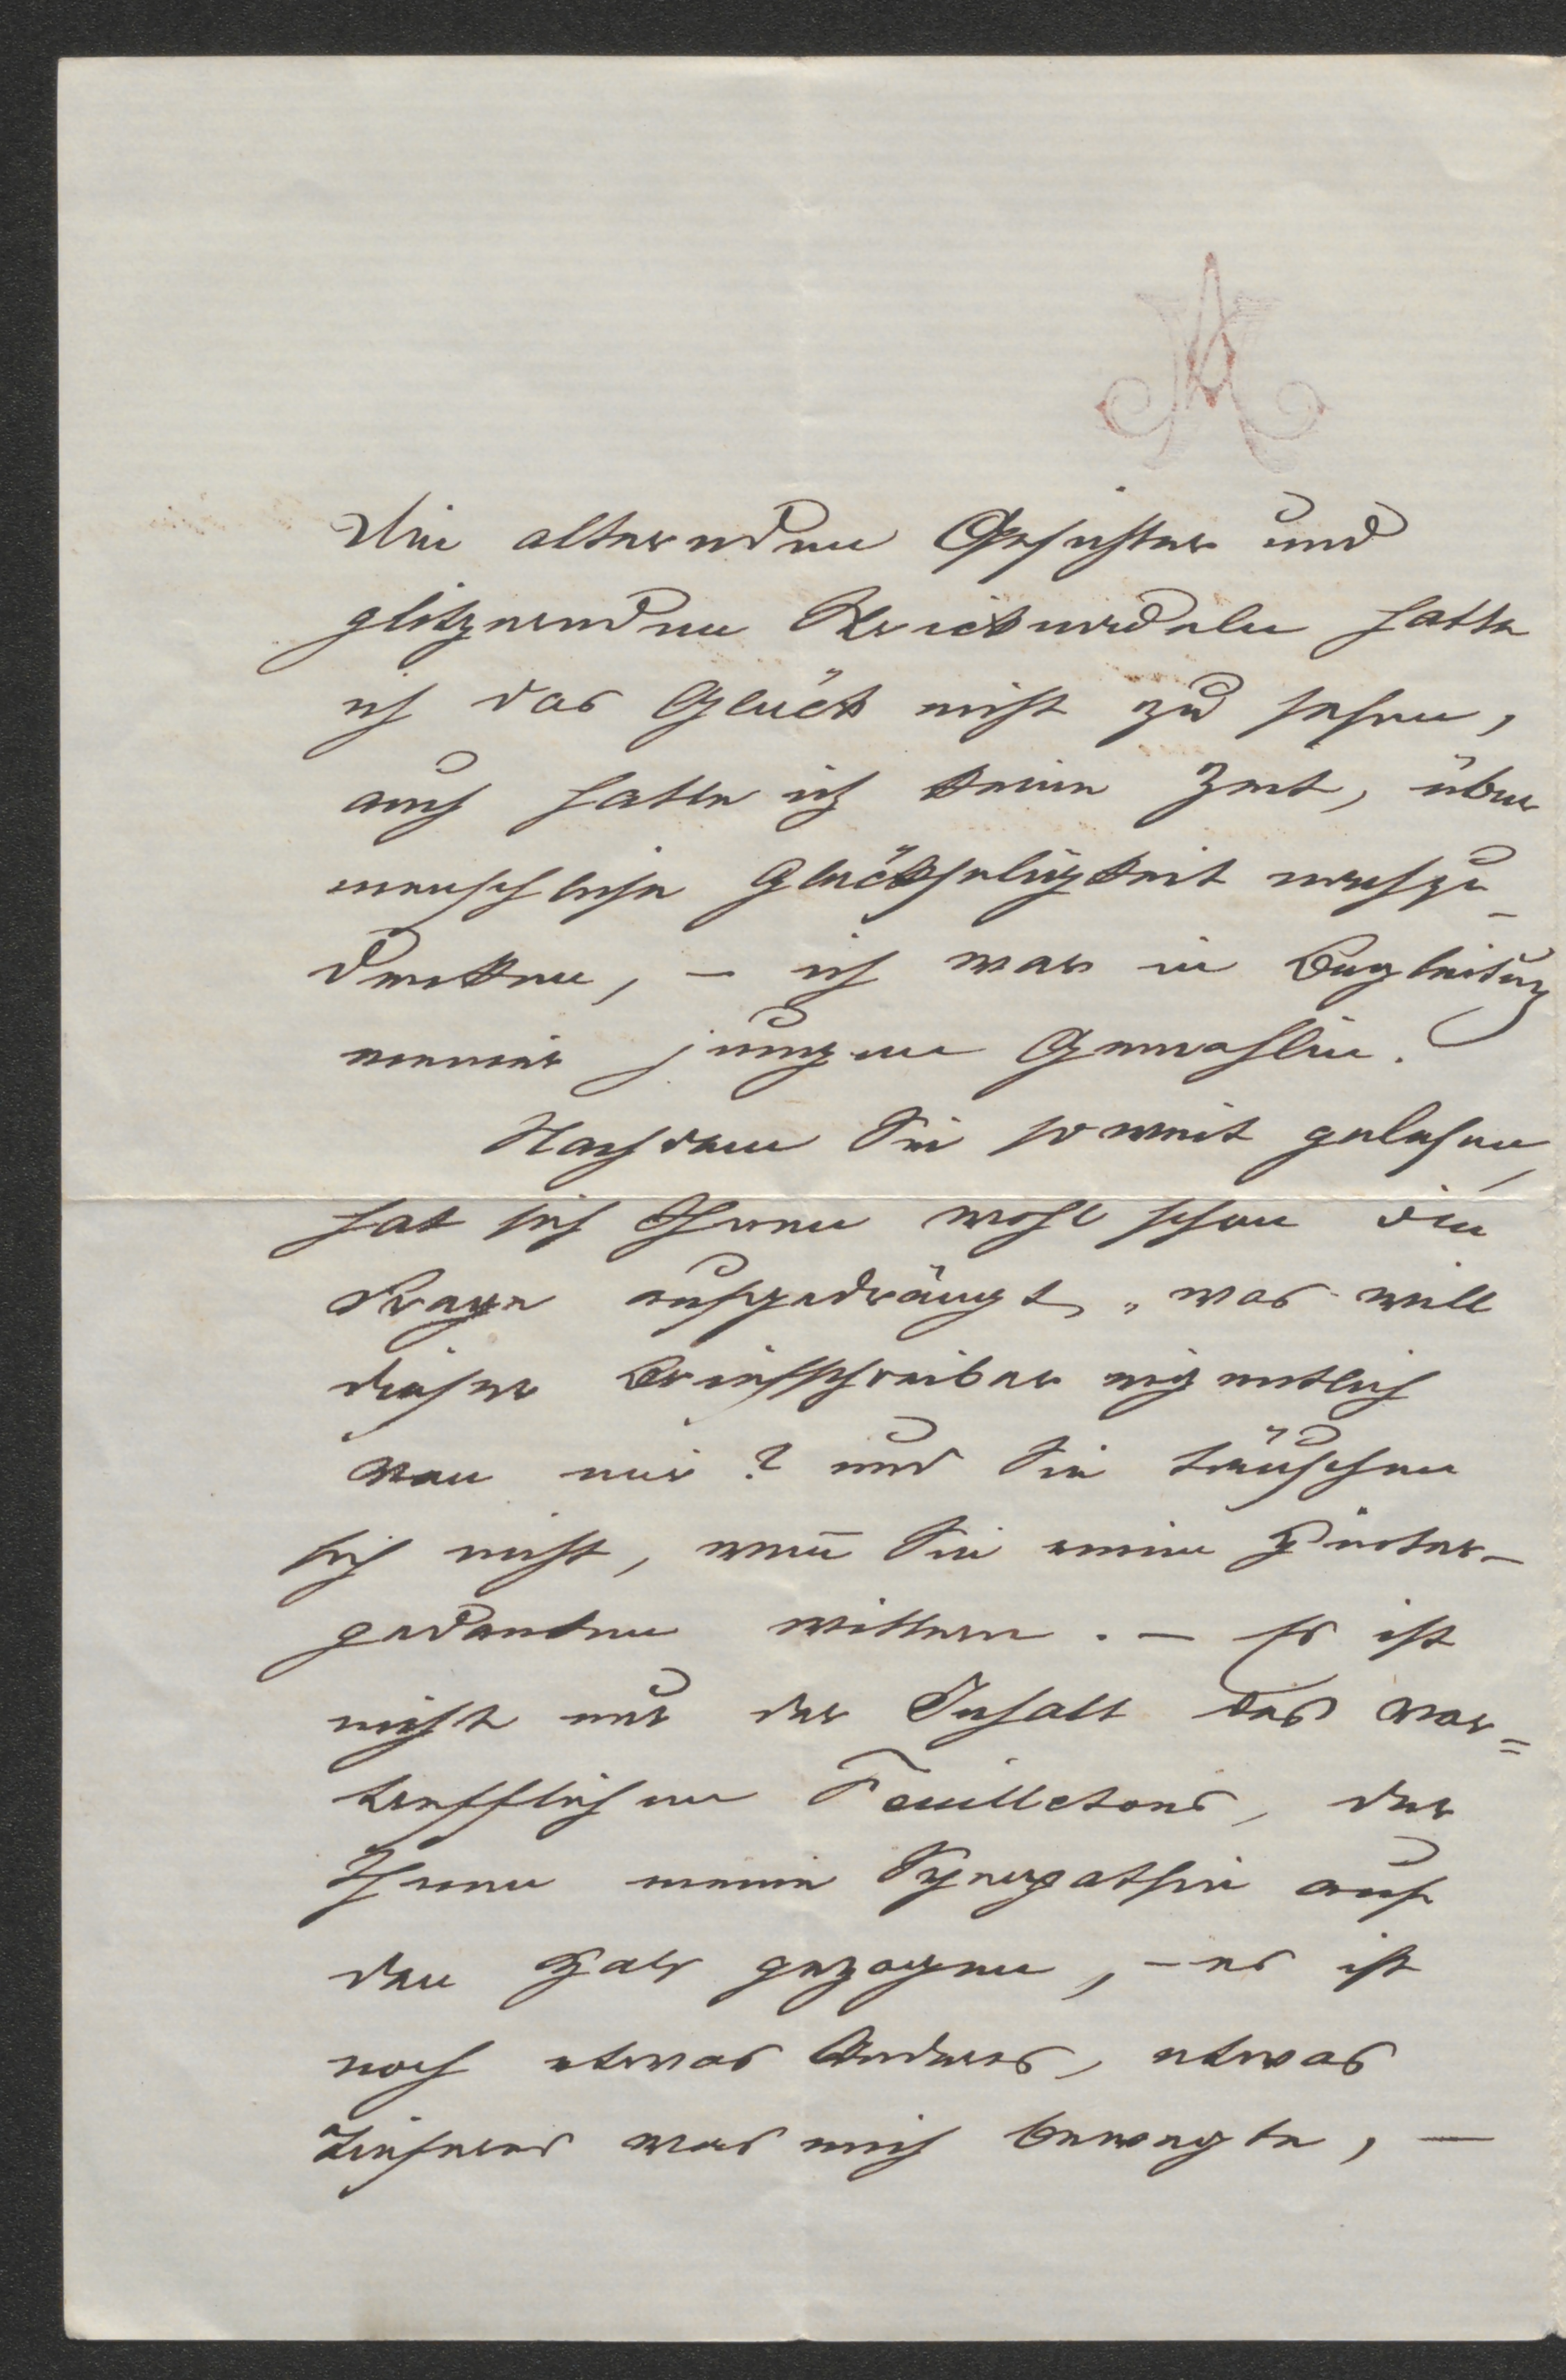 Die alternden Gesichter und
glitzernden Kreuzerdeln hatte
ich das Glück nicht zu sehen,
auch hatte ich keine Zeit, über
menschliche Glückseligkeit nachzu-
denken, – ich war in Begleitung
meiner jungen Gemahlin.
Nachdem Sie soweit gelesen,
hat sich Ihnen wohl schon die
Frage aufgedrängt, „was will
dieser Briefschreiber eigentlich
von mir? und Sie täuschen
sich nicht, wenn̄ Sie einen Hinter-
gedanken wittern. – Es ist
nicht nur der Inhalt des vor=
trefflichen Feuilletons, der
Ihnen meine Sympathie auf
den Hals gezogen, – es ist
noch etwas Anderes, etwas
Tieferes was mich bewegte, –